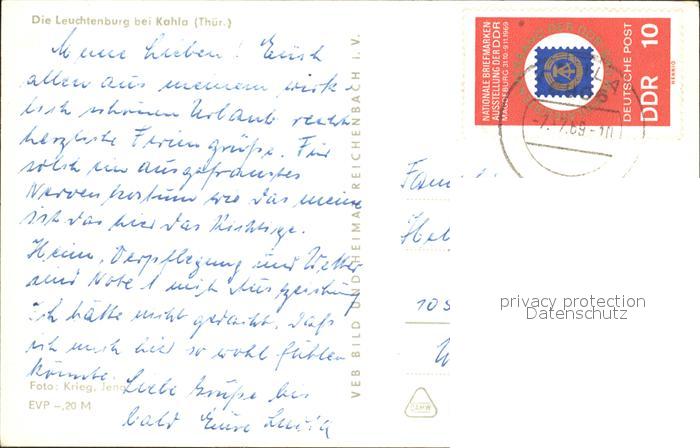 Die Leuchtenburg bei Kahla (Thür.)
Meine Lieben! Euch
allen aus meinem wirk-
lich schönen Urlaub recht
herzliche Feriengrüße. Für
solch ein ausgefranstes
Nervenkostüm wie das meine
ist das hier das Richtige.
Heim, Verpflegung und Wetter
sind Note 1 mit Auszeichnung
Ich hätte nicht gedacht, daß
ich mich hier so wohl fühlen
könnte.
Liebe Grüße bis
bald Eure
Foto: Krieg, Jena
EVP –,20 M
VEB BILD UND HEIMAT REICHENBACH I. V.
NATIONALE BRIEFMARKEN-
AUSSTELLUNG DER DDR
MAGDEBURG 31.10.-9.11.1969
DEUTSCHE POST
DDR 10
HENNIG
-7.7.69-
Fam
105
privacy protection
Datenschutz